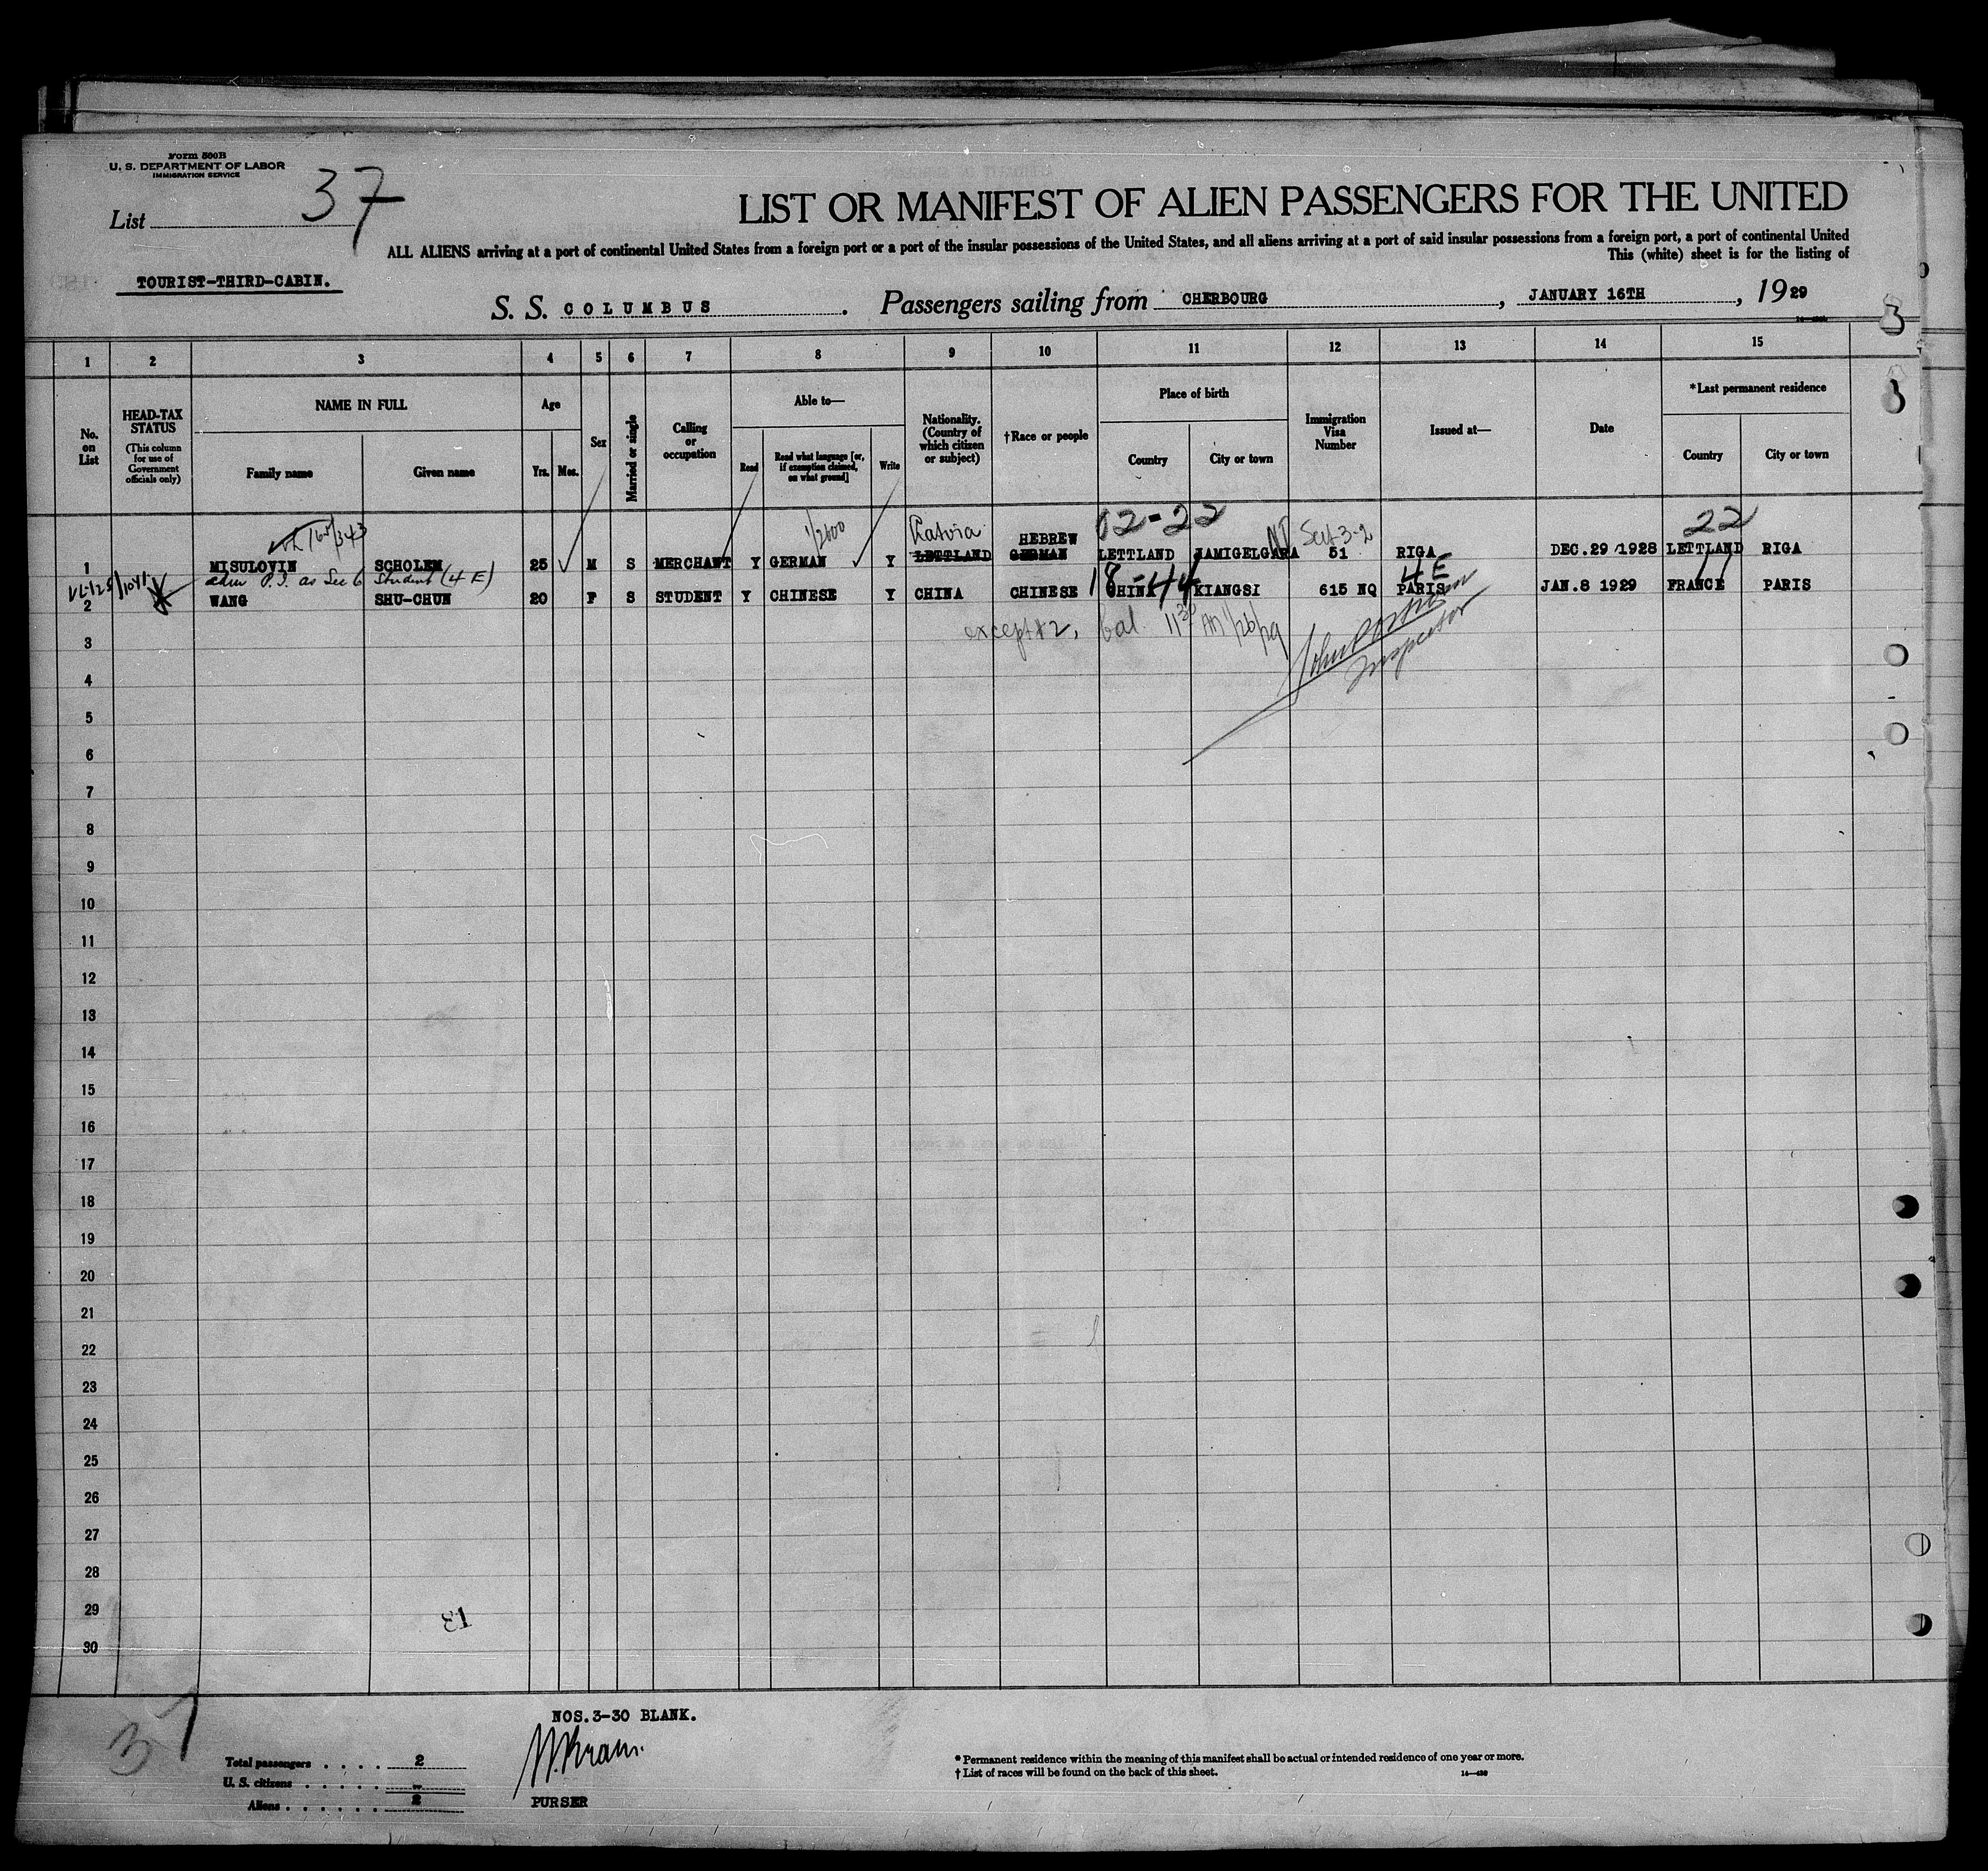 Form 500B
U. S. DEPARTMENT OF LABOR
IMMIGRATION SERVICE
List 37
LIST OR MANIFEST OF ALIEN PASSENGERS FOR THE UNITED
ALL ALIENS arriving at a port of continental United States from a foreign port or a port of the insular possessions of the United States, and all aliens arriving at a port of said insular possessions from a foreign port, a port of continental United
This (white) sheet is for the listing of
TOURIST-THIRD-CABIN.
S. S. COLUMBUS. Passengers sailing from CHERBOURG, JANUARY 16TH, 1929
1 2 3 4 5 6 7 8 9 10 11 12 13 14 15
No. on List
HEAD-TAX STATUS
(This column for use of Government officials only)
NAME IN FULL
Family name Given name
Age
Yrs. Mos.
Sex
Married or single
Calling or occupation
Able to—
Read
Read what language [or, if exemption claimed, on what ground]
Write
Nationality. (Country of which citizen or subject)
†Race or people
Place of birth
Country City or town
Immigration Visa Number
Issued at—
Date
*Last permanent residence
Country City or town
1/2600 Latvia HEBREW 02-22 Sect 3-2 22
1 MISULOVIN SCHOLEM 25 M S MERCHANT Y GERMAN Y LETTLAND GERMAN LETTLAND JAMIGELGARA 51 RIGA DEC.29 1928 LETTLAND RIGA
adm P.I. as Sec 6 Student (4 E) 18-44 4E 11
2 WANG SHU-CHUN 20 F S STUDENT Y CHINESE Y CHINA CHINESE CHINA KIANGSI 615 NQ PARIS JAN.8 1929 FRANCE PARIS
except #2, bal 11 30 AM 1/26/29
Inspector
3
4
5
6
7
8
9
10
11
12
13
14
15
16
17
18
19
20
21
22
23
24
25
26
27
28
29
30
37
NOS.3-30 BLANK.
Total passengers . . . . 2
U. S. citizens . . . . . -
Aliens . . . . . . 2
PURSER
* Permanent residence within the meaning of this manifest shall be actual or intended residence of one year or more.
† List of races will be found on the back of this sheet.